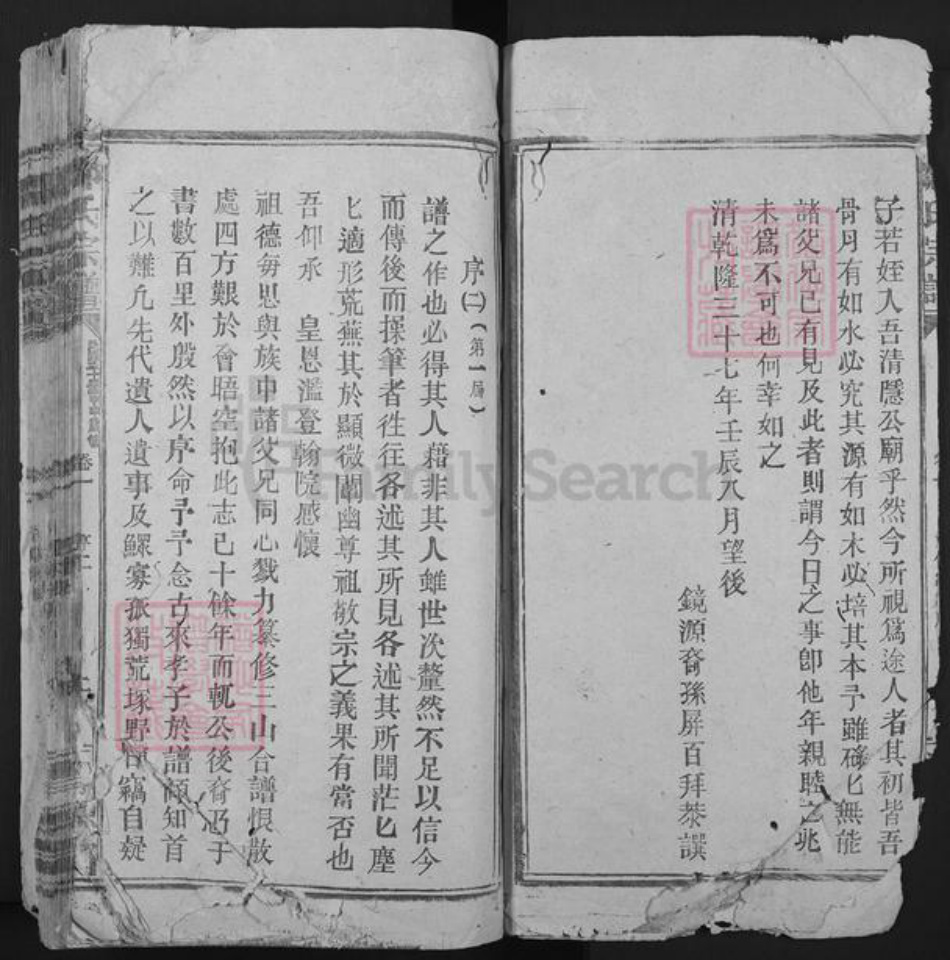 子若姪入吾清隱公廟乎然今所視爲途人者其初皆吾
骨月有如水必究其源有如木必培其本予雖碌匕無能
諸父兄已有見及此者則謂今日之事卽他年親睦之兆
未爲不可也何幸如之
清乾隆三十七年壬辰八月望後
鏡源裔孫屏百拜恭譔
序㈡(第一屆)
譜之作也必得其人藉非其人雖世次釐然不足以信今
而傳後而操筆者徃往各述其所見各述其所聞茫匕塵
匕適形荒蕪其於顯微闡幽尊祖敬宗之義果有當否也
吾仰承 皇恩濫登翰院感懷
祖德每思與族中諸父兄同心戮力纂修三山合譜恨散
處四方艱於會晤空抱此志已十餘年而軏公後裔乃于
書數百里外殷然以序命予予念古來孝子於譜頗知首
之以難凢先代遺人遺事及鰥寡孤獨荒塚野 竊自疑
氏宗譜
卷一
FamilySearch